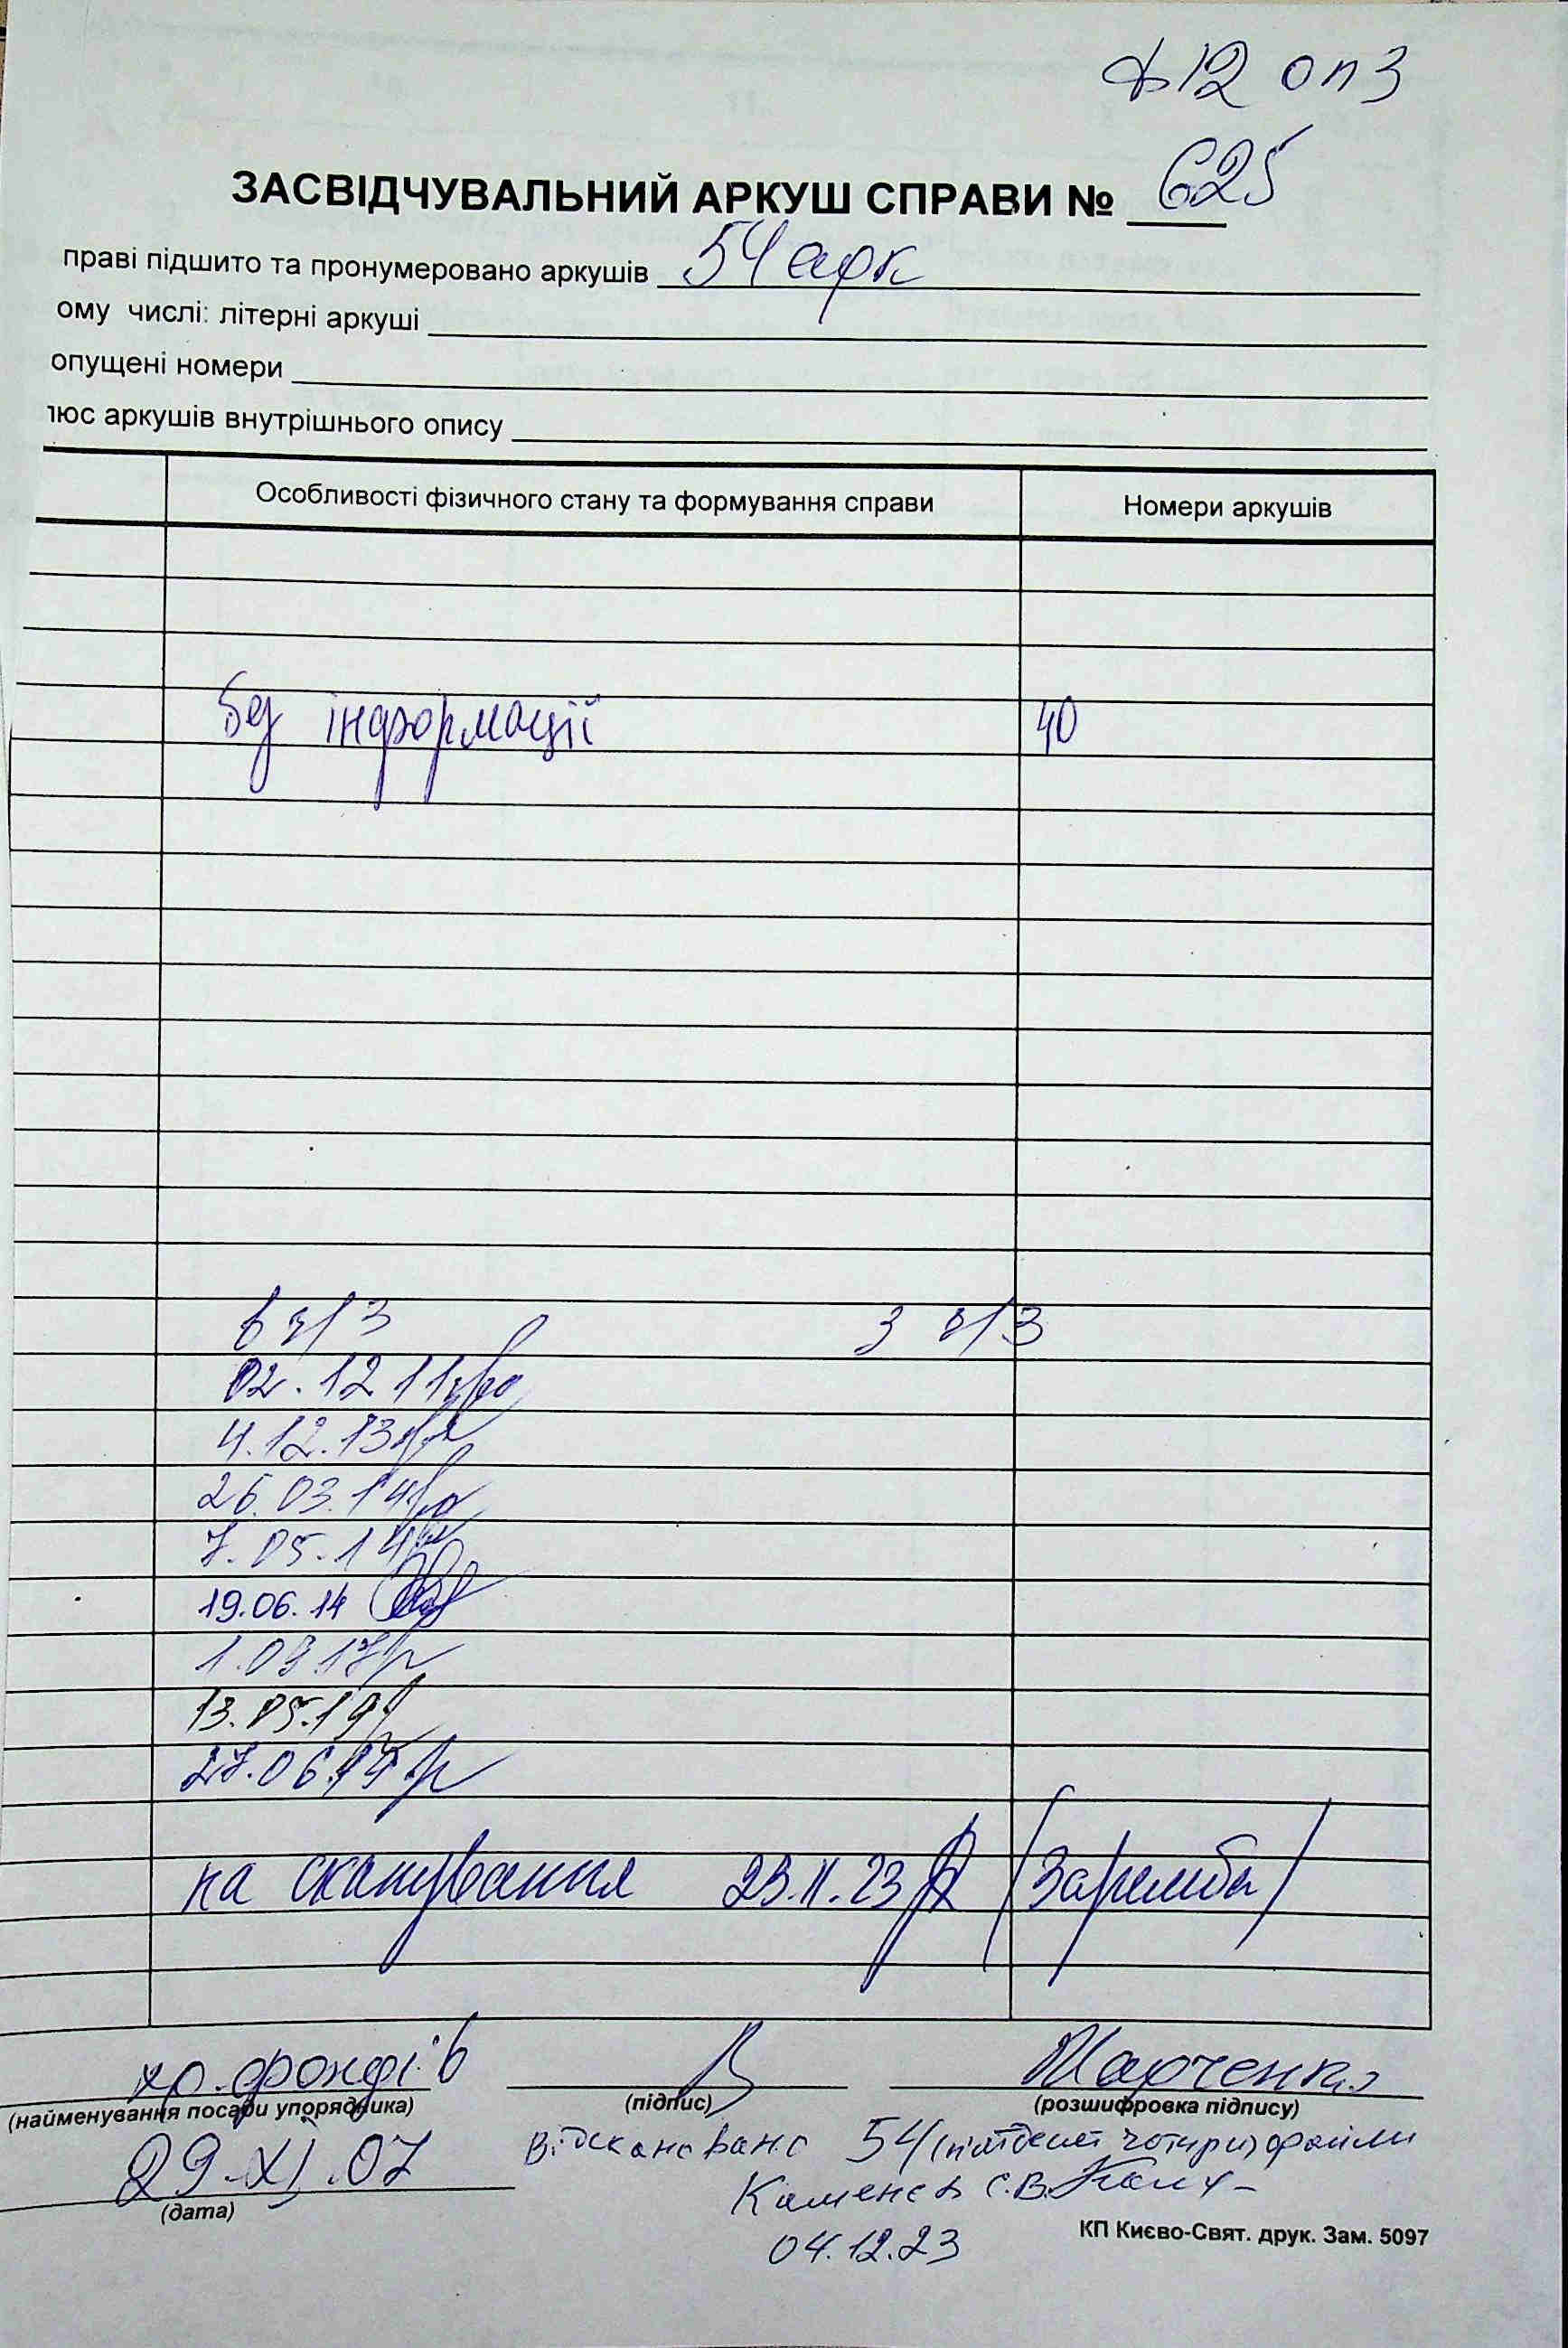 ф12 оп3
ЗАСВІДЧУВАЛЬНИЙ АРКУШ СПРАВИ № 625
праві підшито та пронумеровано аркушів 54 арк
ому числі: літерні аркуші
опущені номери
люс аркушів внутрішнього опису
Особливості фізичного стану та формування справи Номери аркушів
без інформації 40
в ч/з з ч/з
02.12 11
4.12.13
26.03.14
7.05.14
19.06.14
1.03.17
13.05.19
27.06.19
на сканування 23.11.23 /Заремба/
хр. фондів Марченко
(найменування посади упорядника) (підпис) (розшифровка підпису)
29.XI.07
(дата)
Відскановано 54 (п'ятдесят чотири) файли
Каменєв С.В.
04.12.23
КП Києво-Свят. друк. Зам. 5097